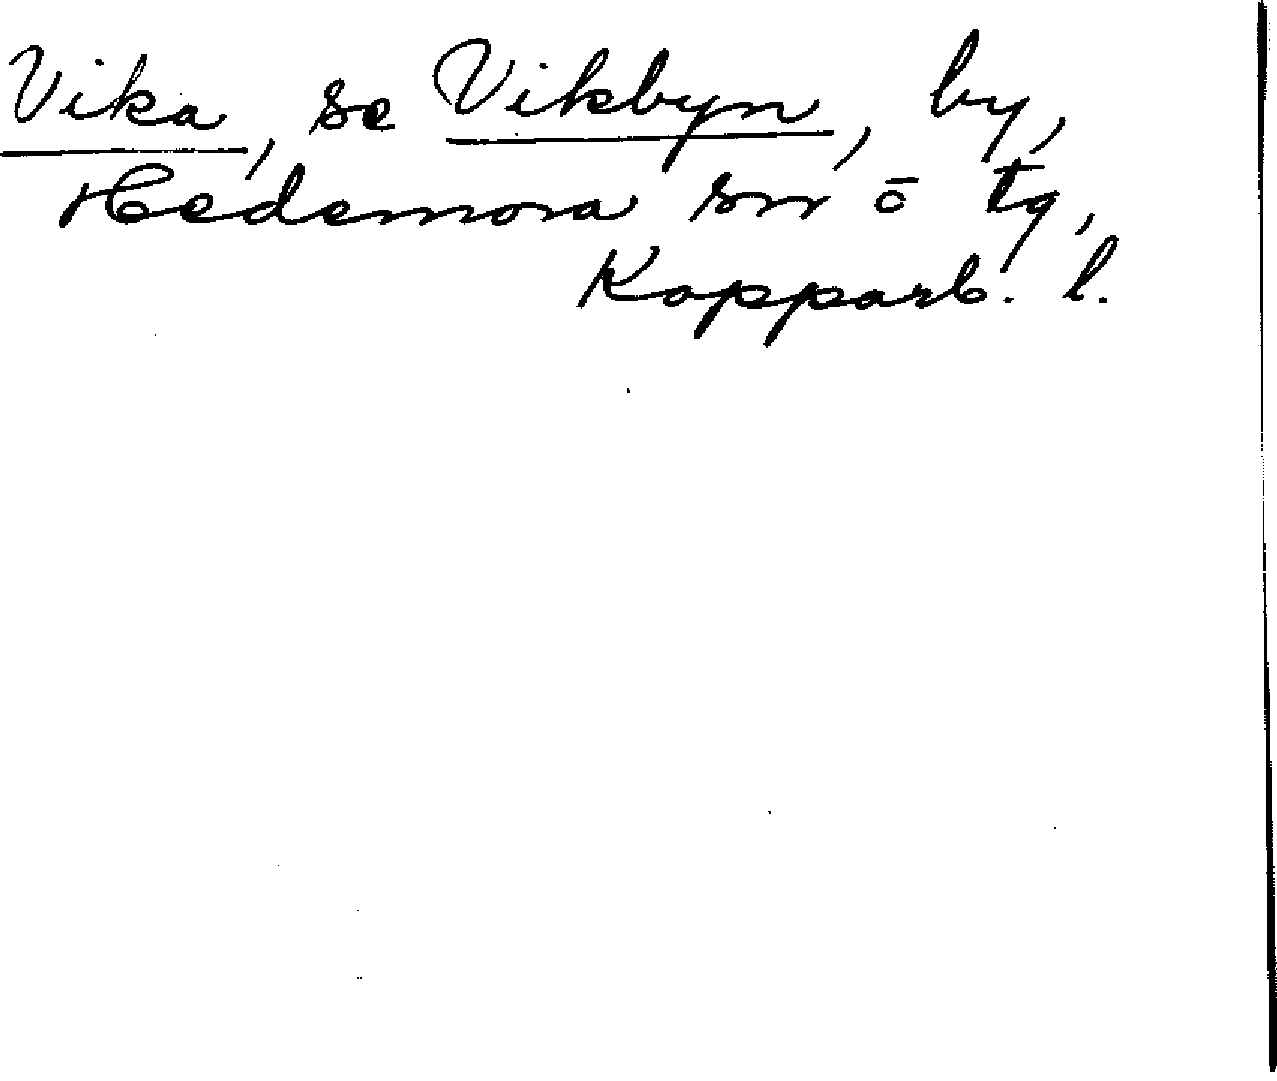 Vika, se Vikbyn, by,
Hedemora sn ō tg,
Kopparb. l.